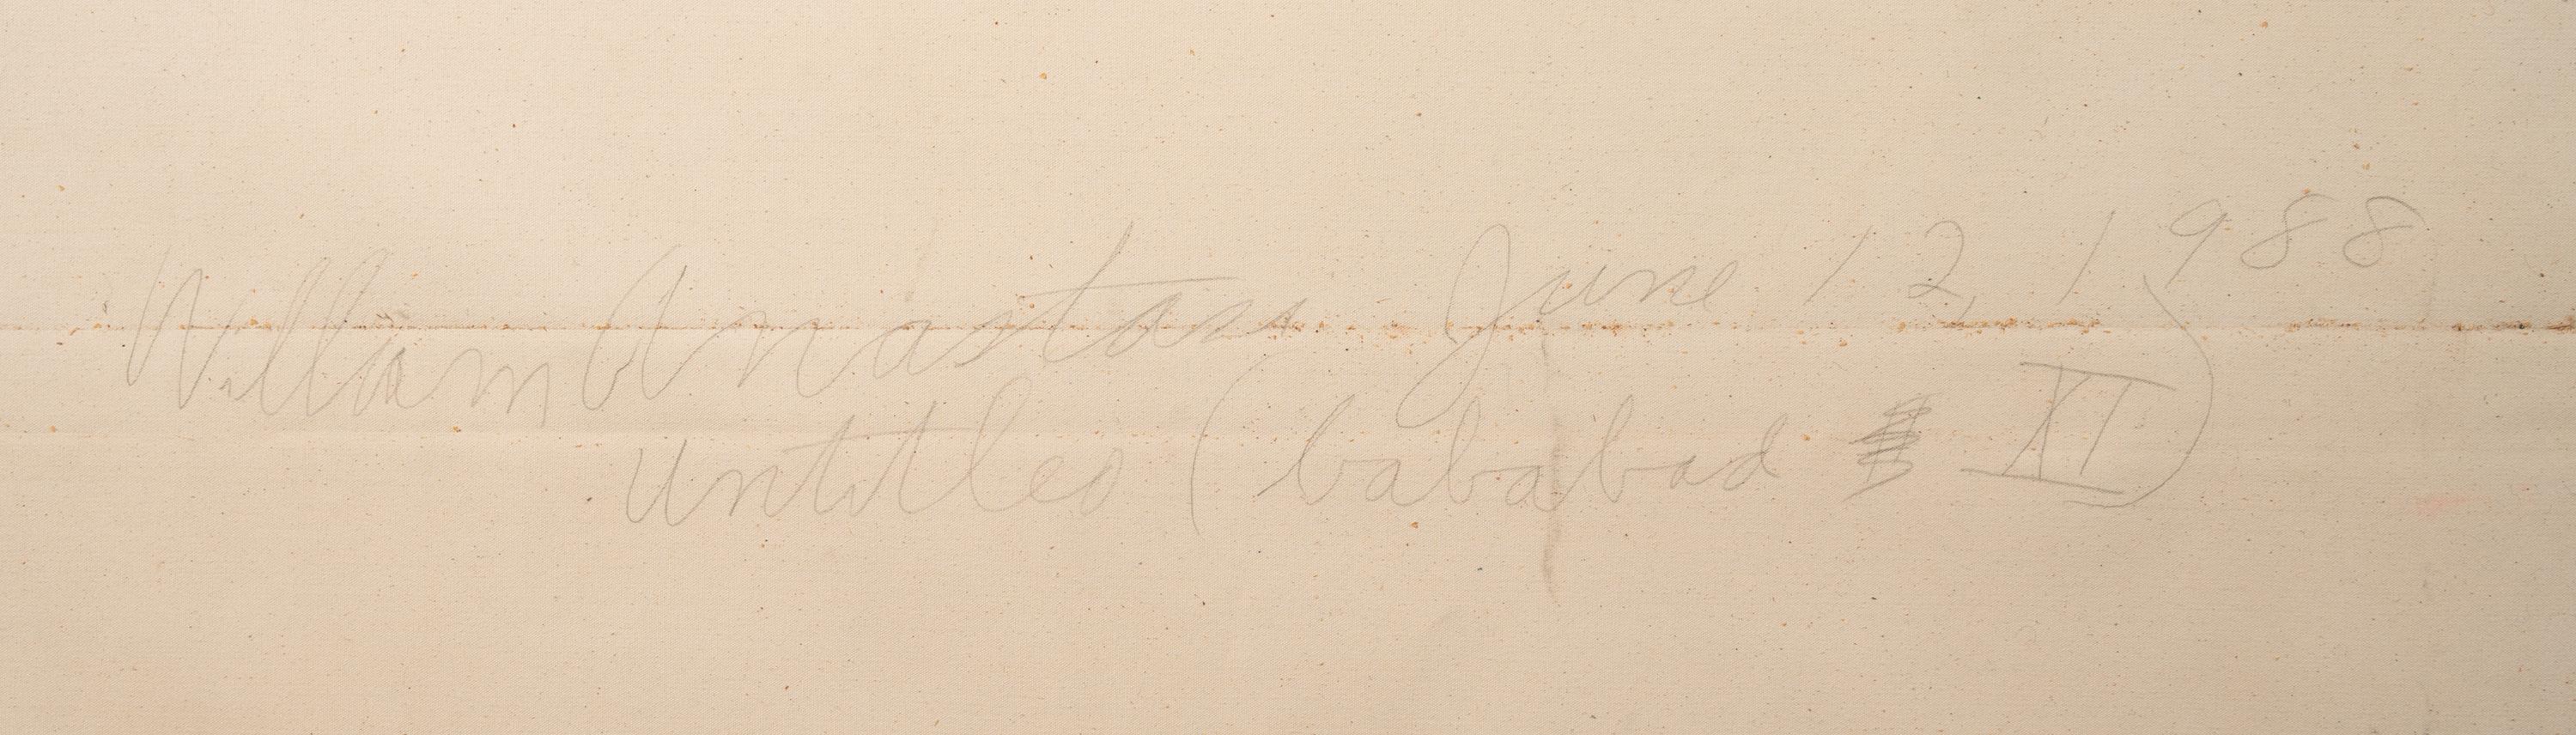 William Anastasi June 12, 1988
Untitled (bababad XI)